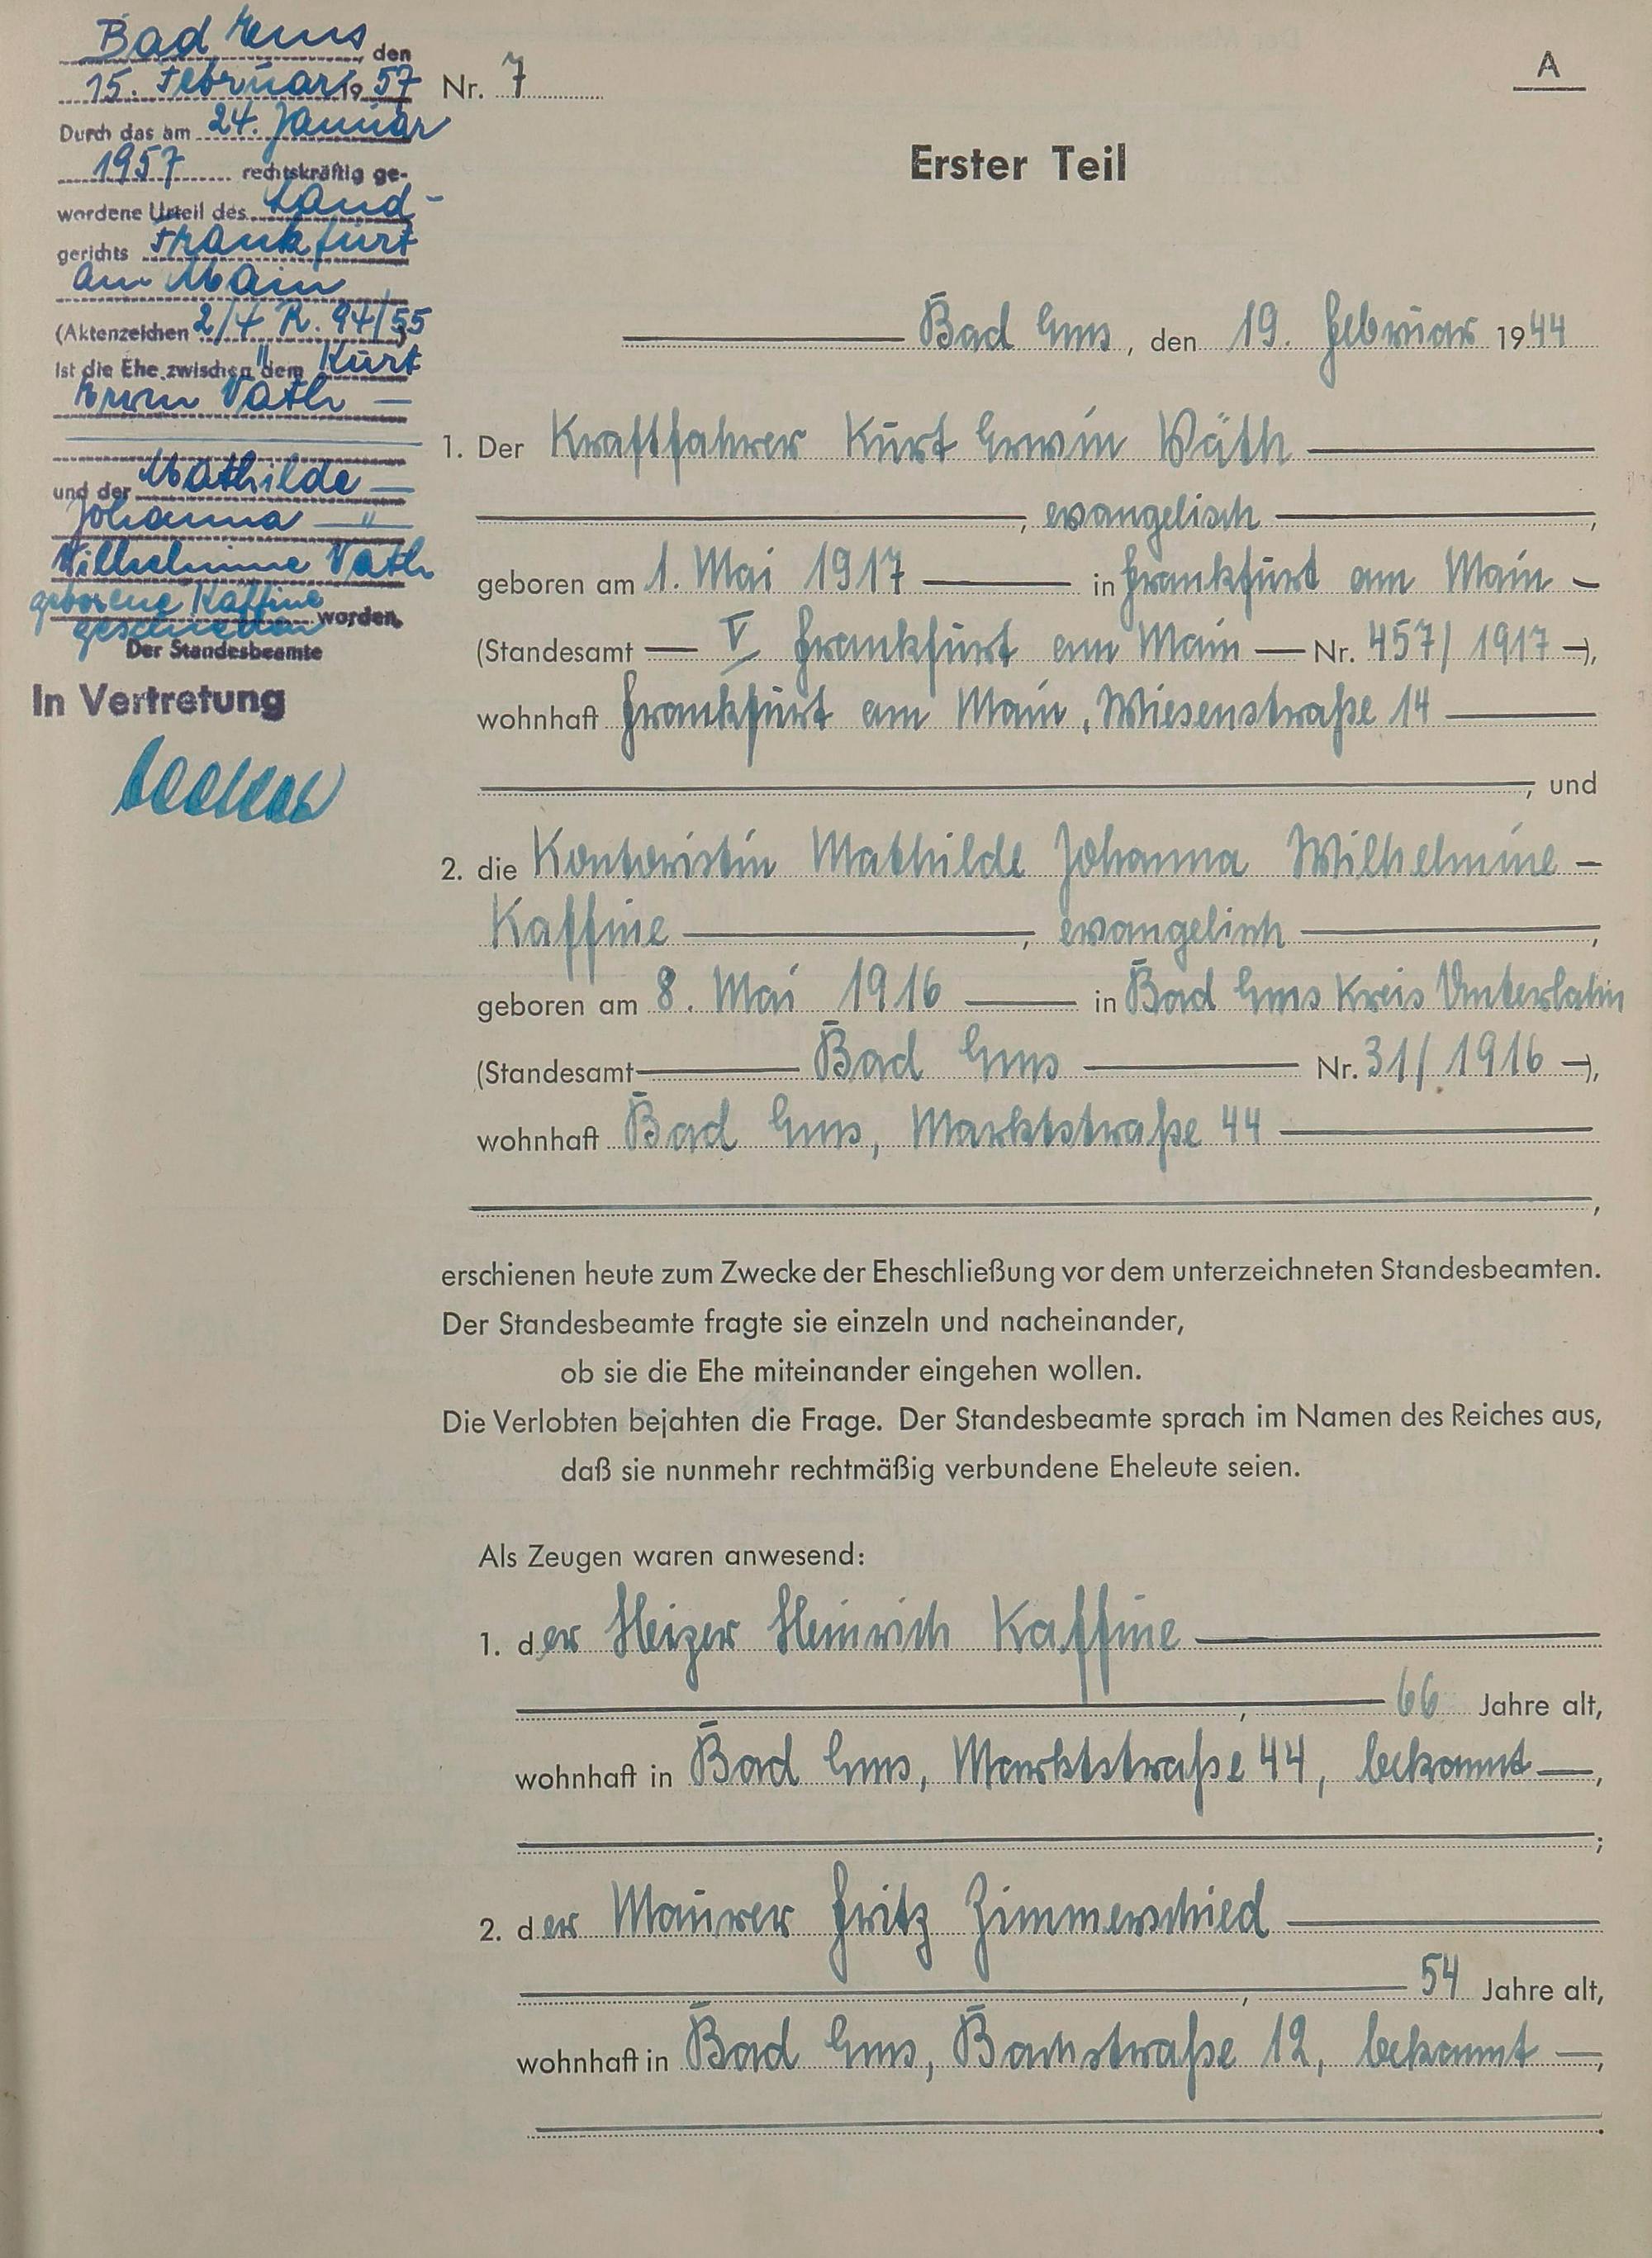 Bad Ems, den
15. Februar 1957
Durch das am 24. Januar
1957 rechtskräftig ge-
wordene Urteil des Land-
gerichts Frankfurt
am Main
(Aktenzeichen 2/4 R. 94/55)
ist die Ehe zwischen dem Kurt
Erwin Väth —
und der Mathilde —
Johanna —
Wilhelmine Väth
geborene Kaffine
geschieden worden.
Der Standesbeamte
In Vertretung
Nr. 7
A
Erster Teil
Bad Ems, den 19. Februar 1944
1. Der Kraftfahrer Kurt Erwin Väth
, evangelisch ,
geboren am 1. Mai 1917 in Frankfurt am Main
(Standesamt V Frankfurt am Main Nr. 457/1917),
wohnhaft Frankfurt am Main, Wiesenstraße 14
, und
2. die Kontoristin Mathilde Johanna Wilhelmine
Kaffine , evangelisch ,
geboren am 8. Mai 1916 in Bad Ems Kreis Unterlahn
(Standesamt Bad Ems Nr. 31/1916),
wohnhaft Bad Ems, Marktstraße 44
,
erschienen heute zum Zwecke der Eheschließung vor dem unterzeichneten Standesbeamten.
Der Standesbeamte fragte sie einzeln und nacheinander,
ob sie die Ehe miteinander eingehen wollen.
Die Verlobten bejahten die Frage. Der Standesbeamte sprach im Namen des Reiches aus,
daß sie nunmehr rechtmäßig verbundene Eheleute seien.
Als Zeugen waren anwesend:
1. der Heizer Heinrich Kaffine
, 66 Jahre alt,
wohnhaft in Bad Ems, Marktstraße 44, bekannt ,
;
2. der Maurer Fritz Zimmerschied
, 54 Jahre alt,
wohnhaft in Bad Ems, Bachstraße 12, bekannt ,
.